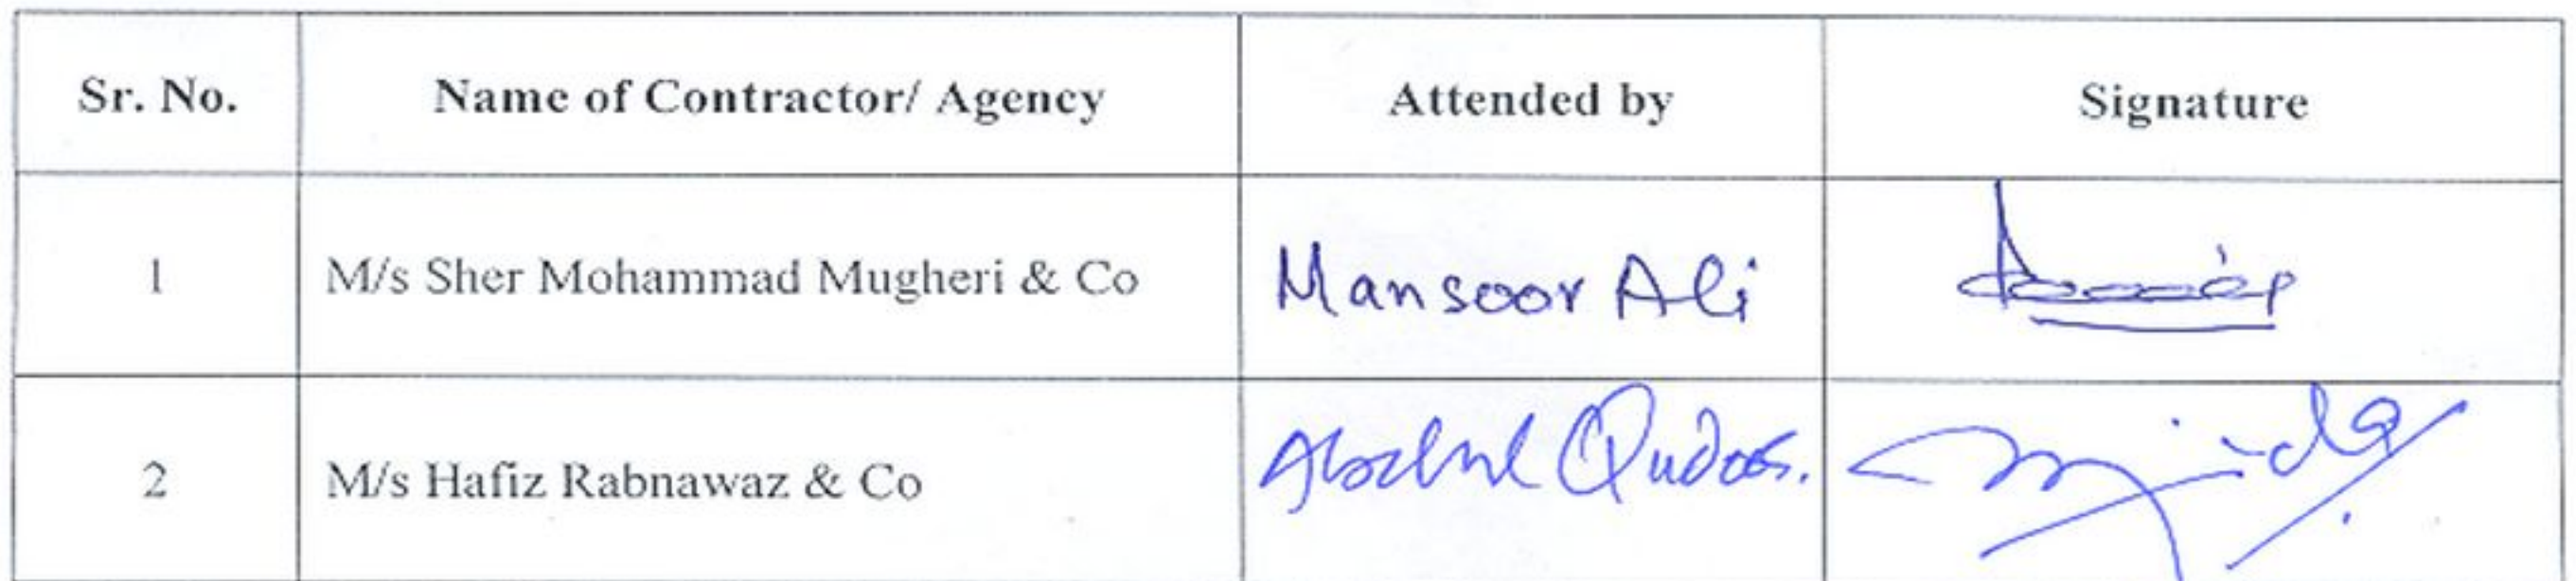 Sr. No. Name of Contractor/ Agency Attended by Signature
1 M/s Sher Mohammad Mugheri & Co Mansoor Ali
2 M/s Hafiz Rabnawaz & Co Abdul Qudoos.